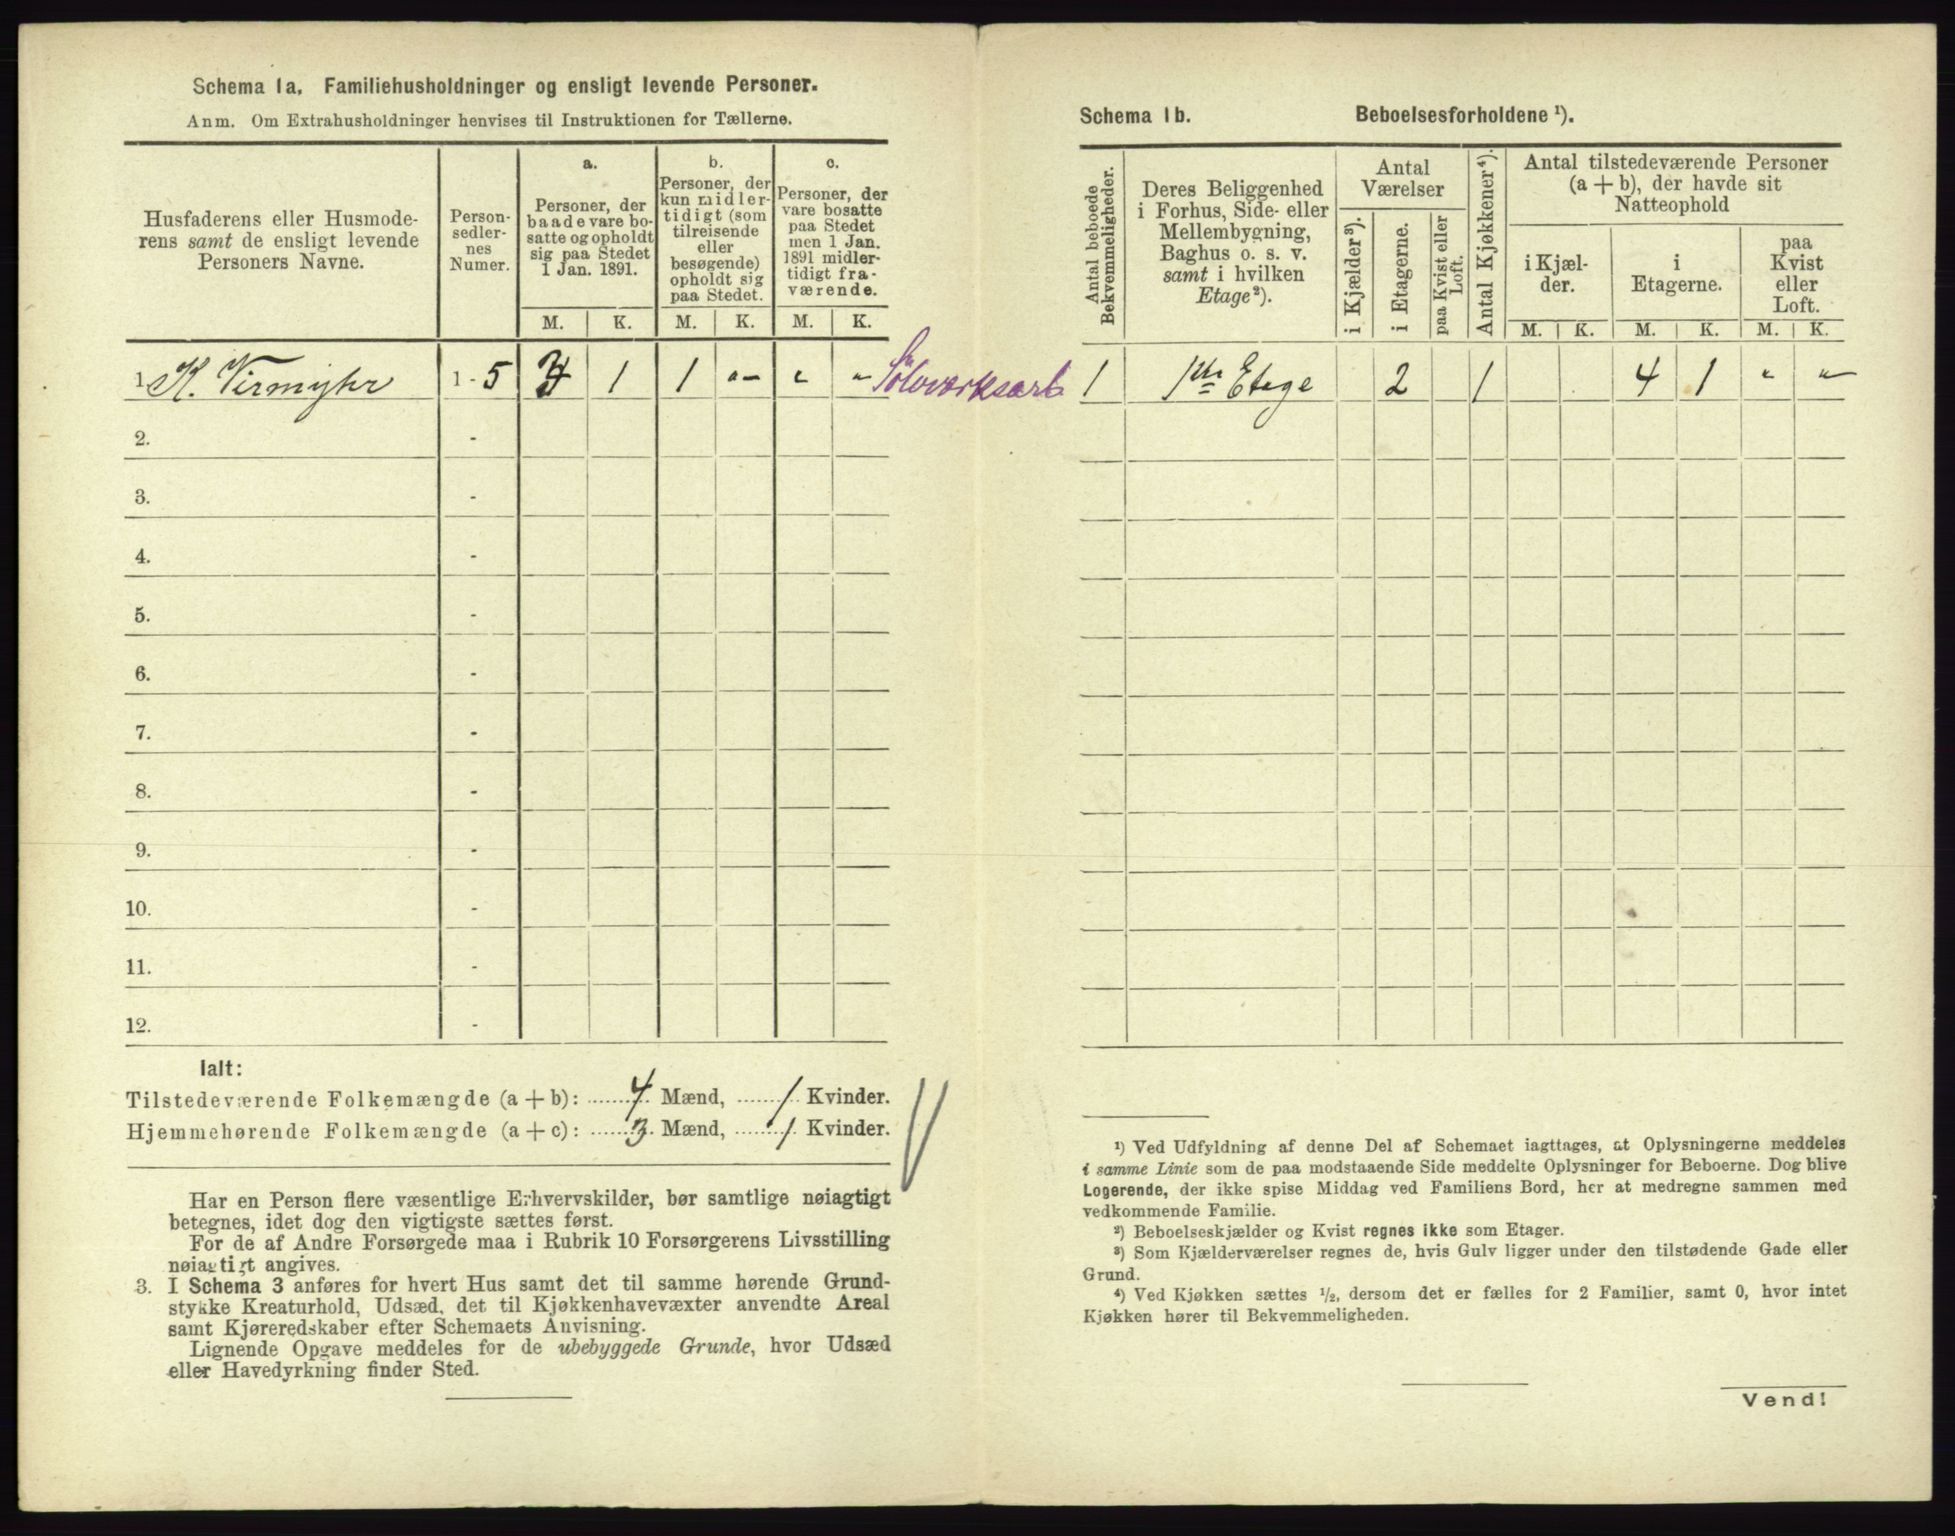 Schema 1a. Familiehusholdninger og ensligt levende Personer.
Anm. Om Extrahusholdninger henvises til Instruktionen for Tællerne.
Husfaderens eller Husmode-
rens samt de ensligt levende
Personers Navne.
Person-
sedler-
nes
Numer.
a.
Personer, der
baade vare bo-
satte og opholdt
sig paa Stedet
1 Jan. 1891.
b.
Personer, der
kun midler-
tidigt (som
tilreisende
eller
besøgende)
opholdt sig
paa Stedet.
c.
Personer, der
vare bosatte
paa Stedet
men 1 Jan.
1891 midler-
tidigt fra-
værende.
M. K. M. K. M. K.
1. K. Virmyhr 1 - 5 3 1 1 „ – „ „ Sølvverksarb.
2. -
3. -
4. -
5. -
6. -
7. -
8. -
9. -
10. -
11. -
12. -
Ialt:
Tilstedeværende Folkemængde (a + b): 4 Mænd, 1 Kvinder.
Hjemmehørende Folkemængde (a + c): 3 Mænd, 1 Kvinder.
Har en Person flere væsentlige Erhvervskilder, bør samtlige nøiagtigt
betegnes, idet dog den vigtigste sættes først.
For de af Andre Forsørgede maa i Rubrik 10 Forsørgerens Livsstilling
nøiagtigt angives.
3. I Schema 3 anføres for hvert Hus samt det til samme hørende Grund-
stykke Kreaturhold, Udsæd, det til Kjøkkenhavevæxter anvendte Areal
samt Kjøreredskaber efter Schemaets Anvisning.
Lignende Opgave meddeles for de ubebyggede Grunde, hvor Udsæd
eller Havedyrkning finder Sted.
Schema 1b. Beboelsesforholdene ¹).
Antal beboede
Bekvemmeligheder.
Deres Beliggenhed
i Forhus, Side- eller
Mellembygning,
Baghus o. s. v.
samt i hvilken
Etage²).
Antal
Værelser
i Kjælder³).
i Etagerne.
paa Kvist eller
Loft.
Antal Kjøkkener⁴).
Antal tilstedeværende Personer
(a + b), der havde sit
Natteophold
i Kjæl-
der.
i
Etagerne.
paa
Kvist
eller
Loft.
M. K. M. K. M. K.
1 1ste Etage 2 1 4 1 „ „
¹) Ved Udfyldning af denne Del af Schemaet iagttages, at Oplysningerne meddeles
i samme Linie som de paa modstaaende Side meddelte Oplysninger for Beboerne. Dog blive
Logerende, der ikke spise Middag ved Familiens Bord, her at medregne sammen med
vedkommende Familie.
²) Beboelseskjælder og Kvist regnes ikke som Etager.
³) Som Kjælderværelser regnes de, hvis Gulv ligger under den tilstødende Gade eller
Grund.
⁴) Ved Kjøkken sættes ½, dersom det er fælles for 2 Familier, samt 0, hvor intet
Kjøkken hører til Bekvemmeligheden.
Vend!